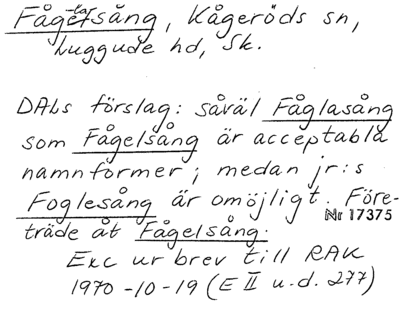 Fågelsång, Kågeröds sn,
Luggude hd, Sk.
DALs förslag: såväl Fåglasång
som Fågelsång är acceptabla
namnformer; medan jr:s
Foglesång är omöjligt. Före-
Nr 17375
träde åt Fågelsång.
Exc ur brev till RAK
1970-10-19 (E II u.d. 277)